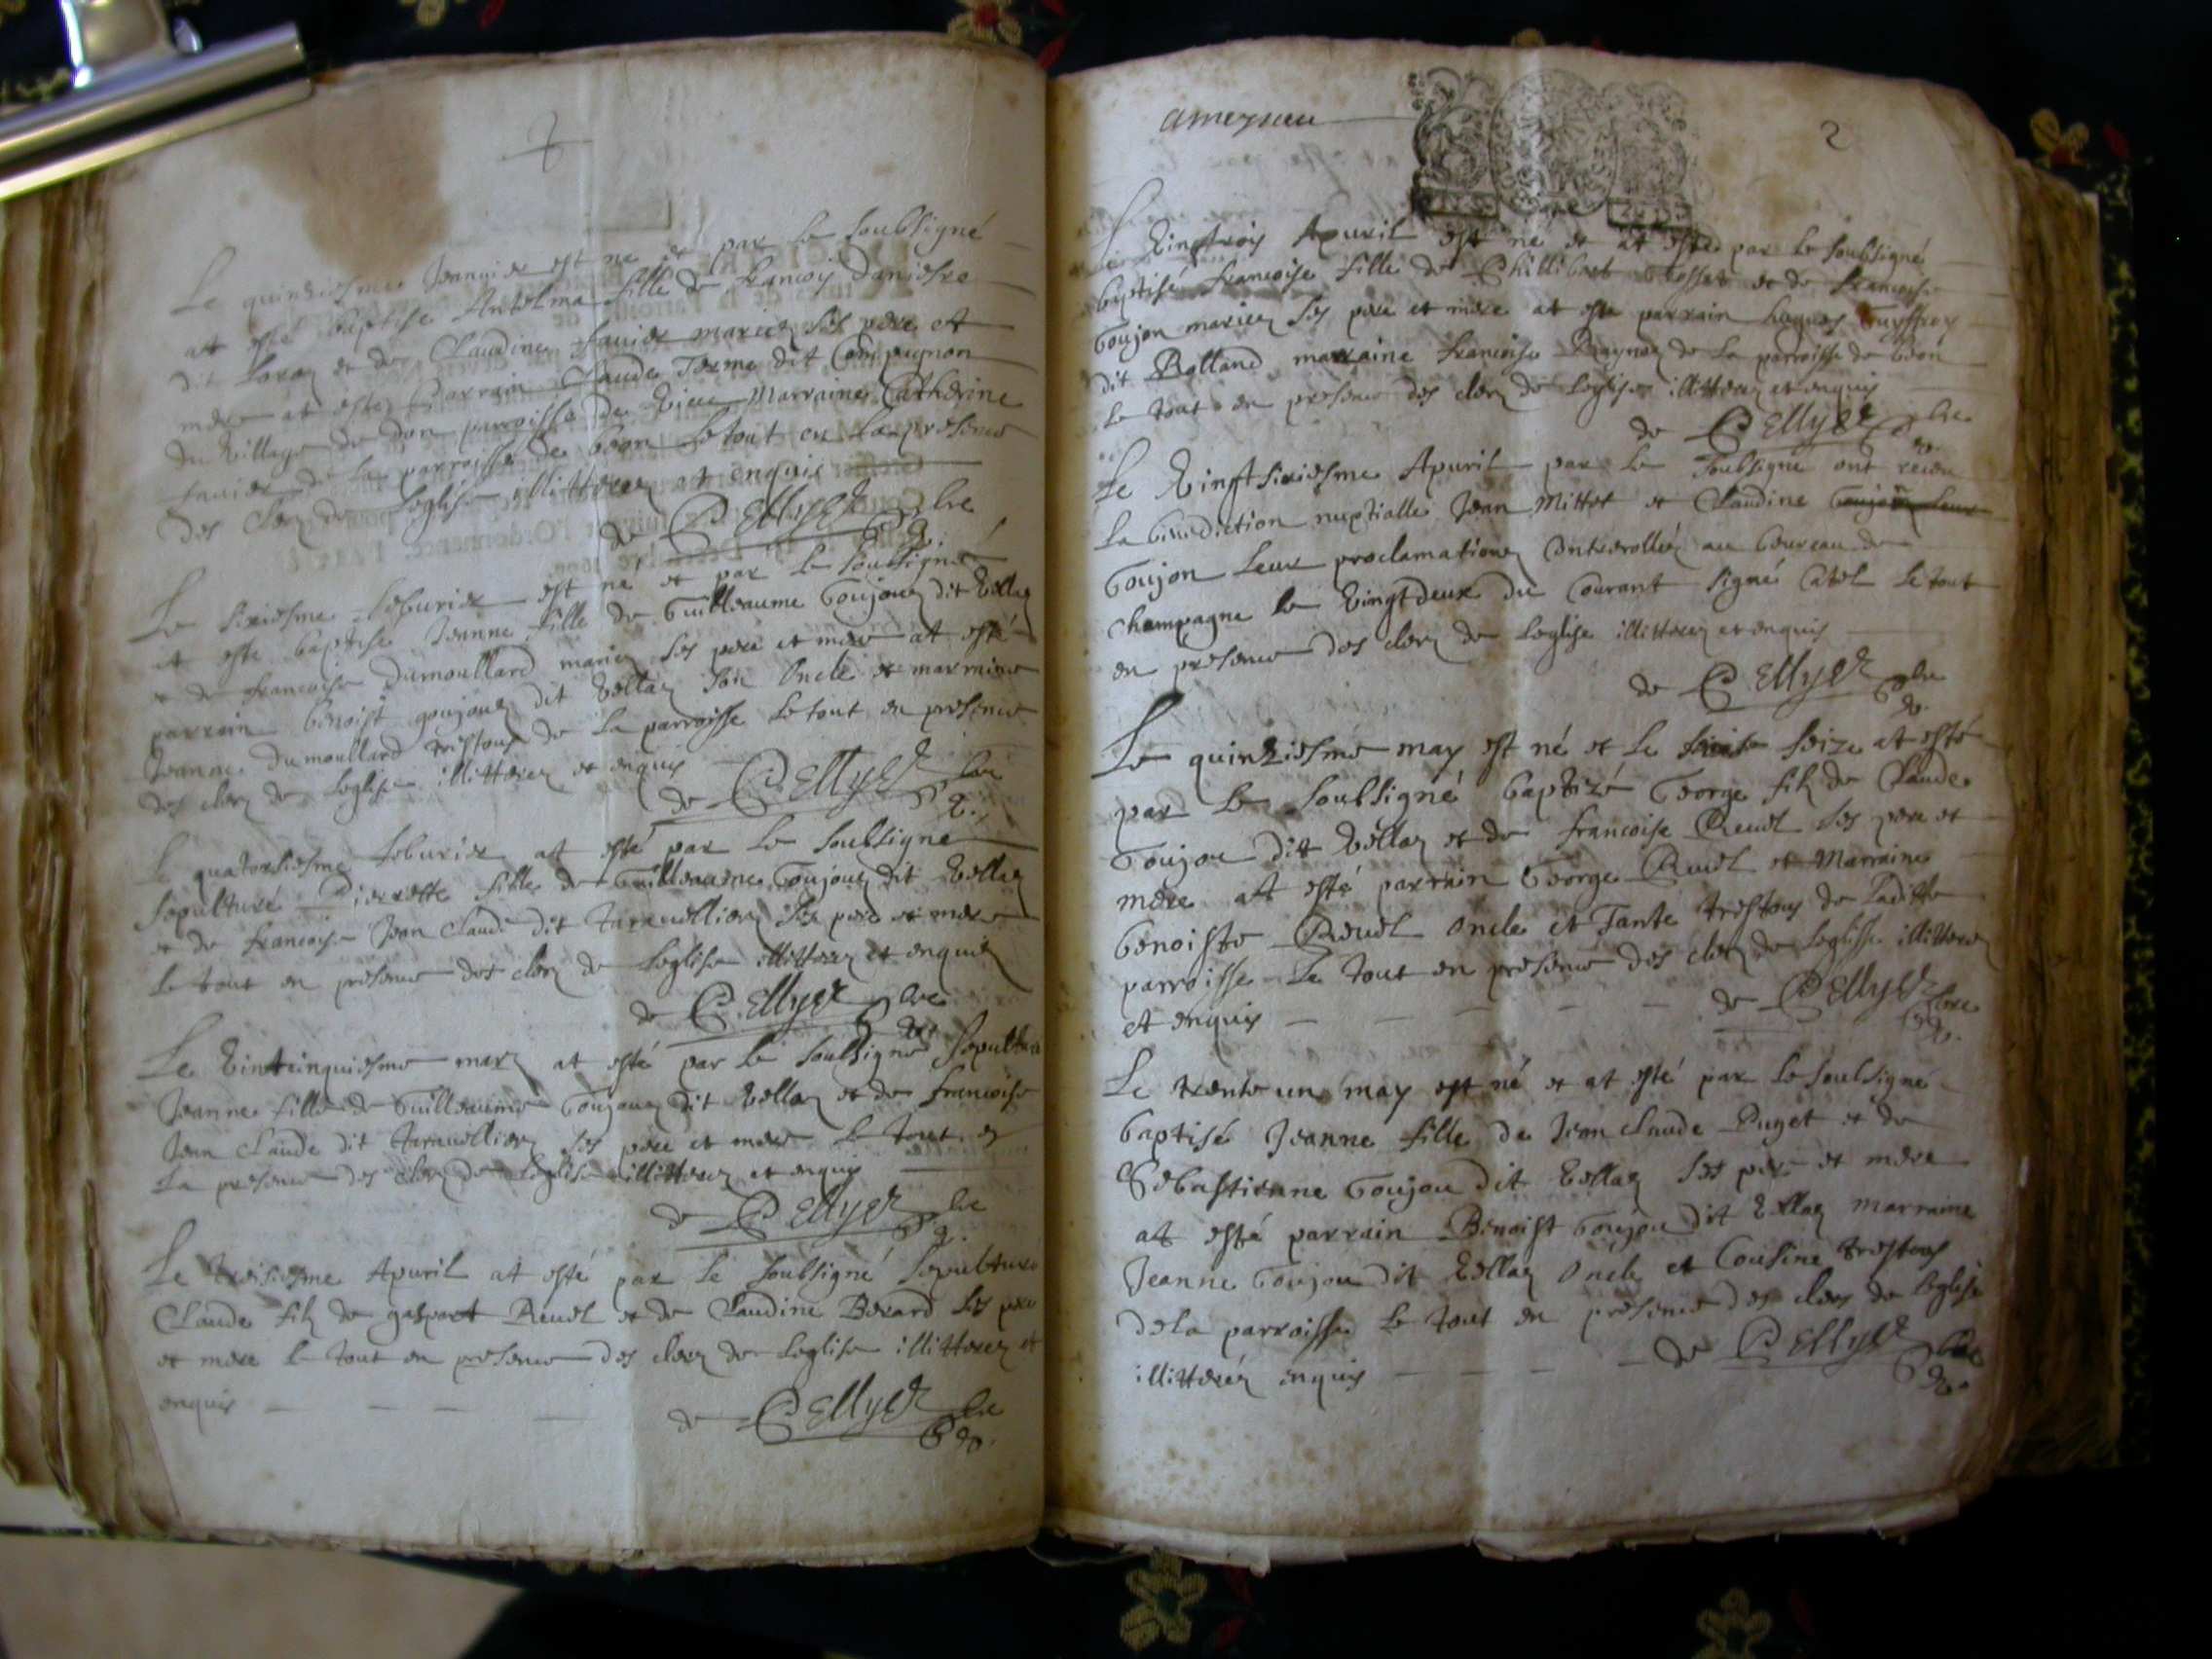 Le quinziesme Januier est ne et par le soubsigné
at esté baptisé Antelma fille de francois
dit et de Claudine fauier mariez ses pere et
mere at esté Parrain Claude dit Compagnon
du Village de don parroisse de Vieu Marraine Catherine
fauier de la parroisse de beon le tout en la presence
des clerz de leglise illitterez et enquis
de Pellyer pbre
Le sixiesme feburier est ne et par le soubsigné
at esté baptisé Jeanne fille de Guilleaume Goujouz dit Vellaz
et de francoise Dumoullard mariez ses pere et mere at esté
parrain benoist goujouz dit Vellaz son oncle et marraine
Jeanne Dumoullard trestous de la parroisse le tout en presence
des clerz de leglise illitterez et enquis
de Pellyer pbre
Le quatorziesme feburier at esté par le soubsigné
sepulturé Pierrette fille de Guilleaume Goujouz dit Vellaz
et de francoise Jean Claude dit ses pere et mere
le tout en presence des clerz de leglise illitterez et enquis
de Pellyer pbre
Le Vintcinquiesme marz at esté par le soubsigné sepulturé
Jeanne fille de Guilleaume Goujouz dit Vellaz et de francoise
Jean Claude dit ses pere et mere le tout en
la presence des clerz de leglise illitterez et enquis
de Pellyer pbre
Le troisiesme Apuril at esté par le soubsigné sepulturé
Claude filz de gaspart Reuel et de Claudine Berard ses pere
et mere le tout en presence des clerz de leglise illitterez et
enquis
de Pellyer pbre
ameysieu
2
Le Vingtrois Apuril est ne et at esté par le soubsigné
baptisé francoise fille de Phillibert et de francoise
Goujon mariez ses pere et mere at esté parrain hugues
dit Rolland marraine francoise de la parroisse de beon
le tout en presence des clerz de leglise illitterez et enquis
de Pellyer pbre
Le Vingtsixiesme Apuril par le soubsigné ont receu
la benediction nuptialle Jean Mittet et Claudine Goujon leur
Goujon leur proclamationz Controllez au bureau de
champagne le Vingtdeux du Courant signé Catel le tout
en presence des clerz de leglise illitterez et enquis
de Pellyer pbre
Le quinziesme may est né et le seize at esté
par le soubsigné baptizé George filz de Claude
Goujou dit Vellaz et de francoise Reuel ses pere et
mere at esté parrain George Reuel et Marraine
benoiste Reuel oncle et Tante trestous de laditte
parroisse le tout en presence des clerz de leglisse illitterez
et enquis
de Pellyer pbre
Le trente un may est né et at esté par le soubsigné
baptisé Jeanne fille de Jean Claude Puget et de
Sebastienne Goujou dit Vellaz ses pere et mere
at esté parrain Benoist Goujou dit Vellaz marraine
Jeanne Goujou dit Vellaz oncle et Cousine trestous
de la parroisse le tout en presence des clers de leglise
illitterez enquis
de Pellyer pbre